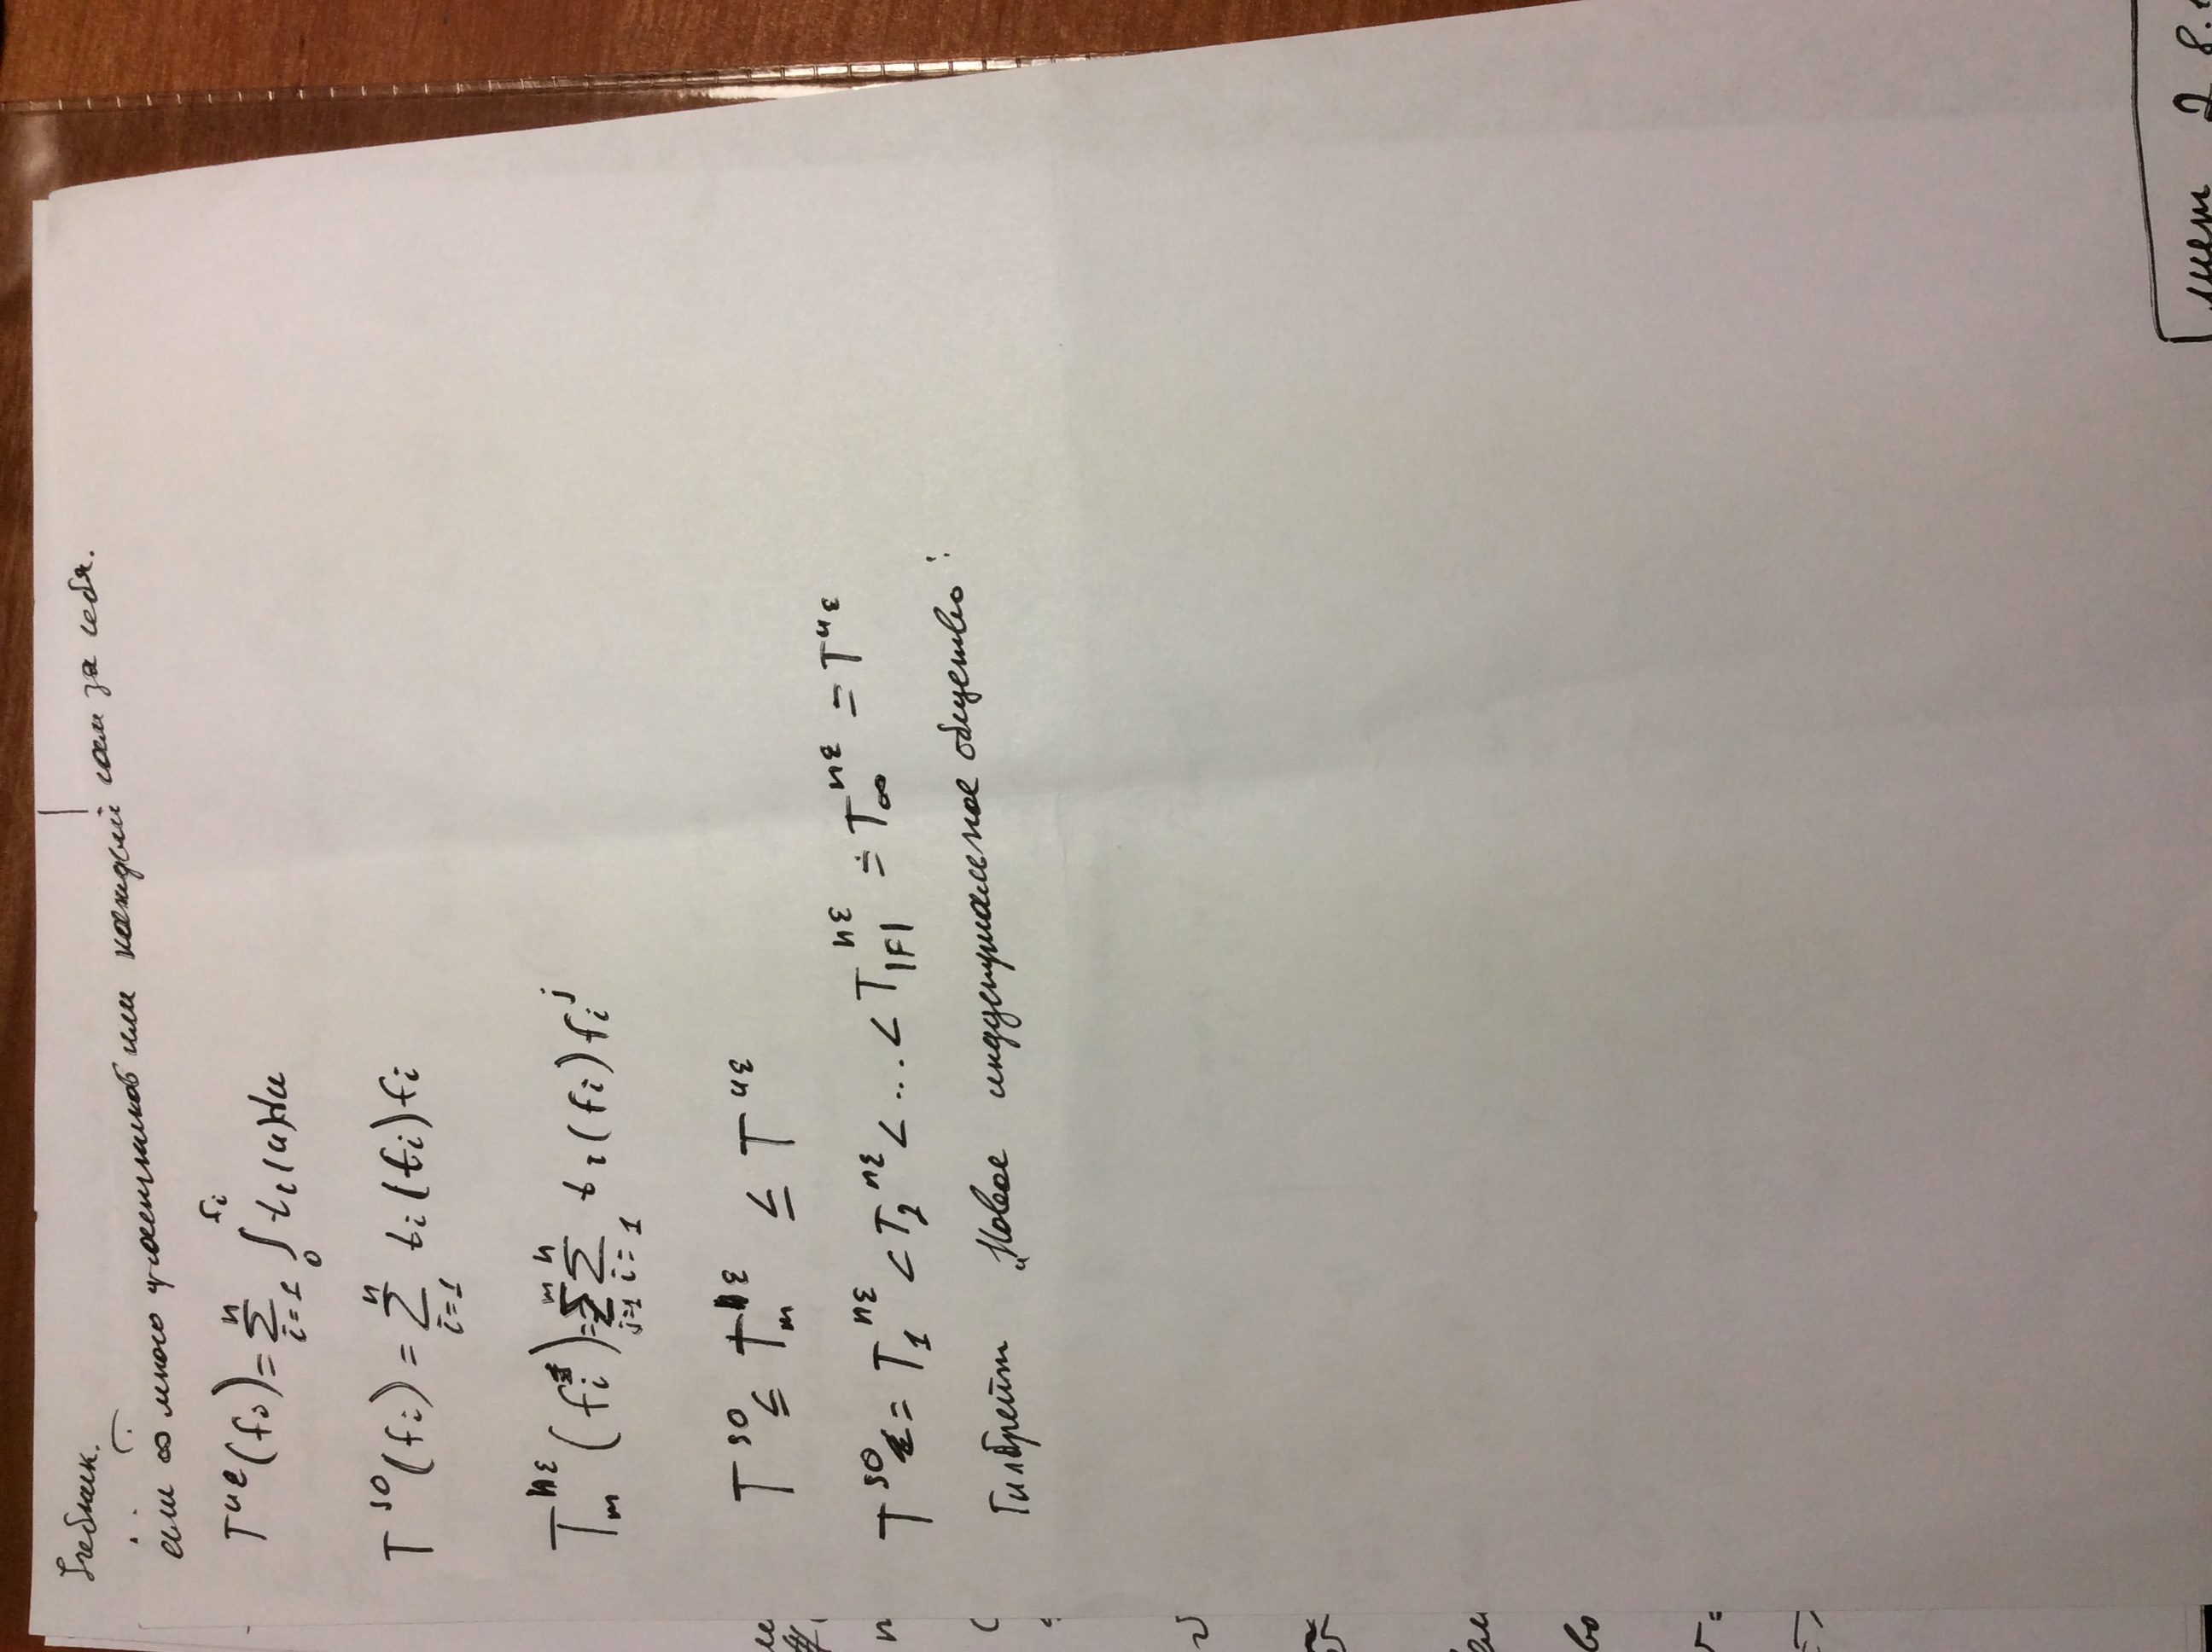 Учебник.
или ∞ много участников или каждый сам за себя.
T^{ue}(f_i) = \sum_{i=1}^{n} \int_0^{f_i} t_i(u)du
T^{so}(f_i) = \sum_{i=1}^{n} t_i(f_i) f_i
T_m^{ne}(f_i^j) = \sum_{j=1}^{m} \sum_{i=1}^{n} t_i(f_i) f_i^j
T^{so} ≤ T_m^{ne} ≤ T^{ue}
T^{so} = T_1^{ne} < T_2^{ne} < ... < T_{|F|}^{ne} = T_∞^{ne} = T^{ue}
Гилбрейт „Новое индустриальное общество“
лист 2